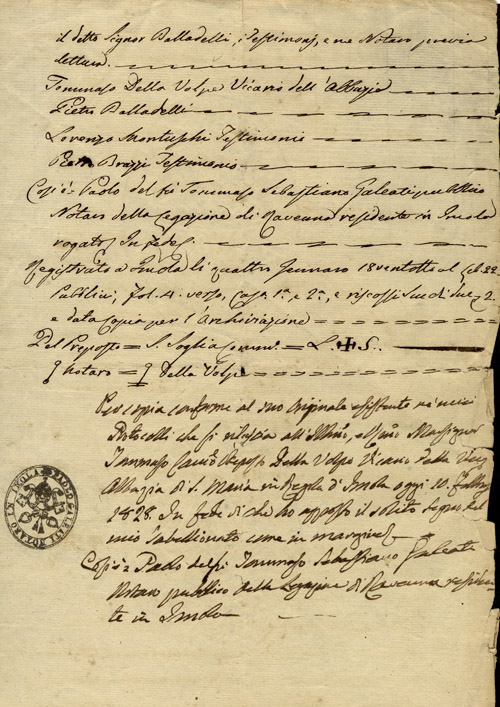 il detto Signor Balladelli, i Testimonj, e me Notaro previa
lettura.
Tommaso Della Volpe Vicario dell'Abbazia
Pietro Balladelli
Lorenzo Montuschi Testimonio
Pietro Brazzi Testimonio
Così è Paolo del fù Tommaso Sebastiano Galeati pubblico
Notaro della Legazione di Ravenna residente in Imola
rogato In fede
Registrato a Imola li quattro Gennaro 18ventotto al Lib. 22
Pubblici, fol. 4. verso, Cas. 1ª e 2ª, e riscossi
e data copia per l'Archiviazione
Del Preposto = S. Soglia = L.✠S.
Il Notaro = Della Volpe
Per copia conforme al suo Originale esistente ne' miei
Protocolli che si rilascia all'Illmo, e Rmo Monsignor
Tommaso Preposto Della Volpe Vicario della
Abbazia di S. Maria in Regola d'Imola oggi 10.
1828. In fede di che ho apposto il solito segno del
mio Tabellionato come in margine
Così è Paolo del fù Tommaso Sebastiano Galeati
Notaro pubblico della Legazione di Ravenna residen-
te in Imola
PAOLO GALEATI NOTARO IN IMOLA